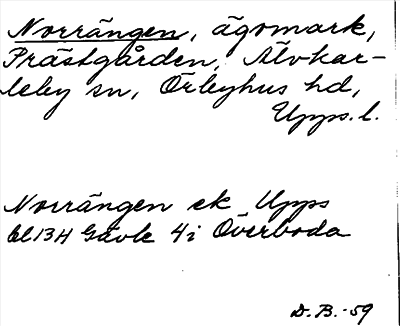 Norrängen, ägomark,
Prästgården, Älvkar-
leby sn, Örbyhus hd,
Upps. l.
Norrängen ek Upps
bl 13H Gävle 4i Överboda
D. B. -59